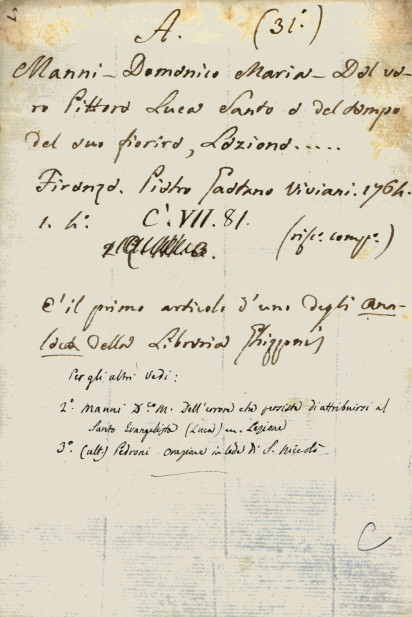 A. (31.)
Manni – Domenico Maria – Del ve-
ro Pittore Luca Santo e del tempo
del suo fiorire, Lezione.....
Firenze. Pietro Gaetano Viviani. 1764.
1. h.° C. VII. 81.
(risc. comp.)
È il primo articolo d'uno degli
della Libreria
Per gli altri vedi:
2° Manni D.co M. Dell'errore che persiste di attribuirsi al
Santo Evangelista (Luca) ... Lezione
3° (ult) Pedroni - Orazione in lode di S. Niccolò
C